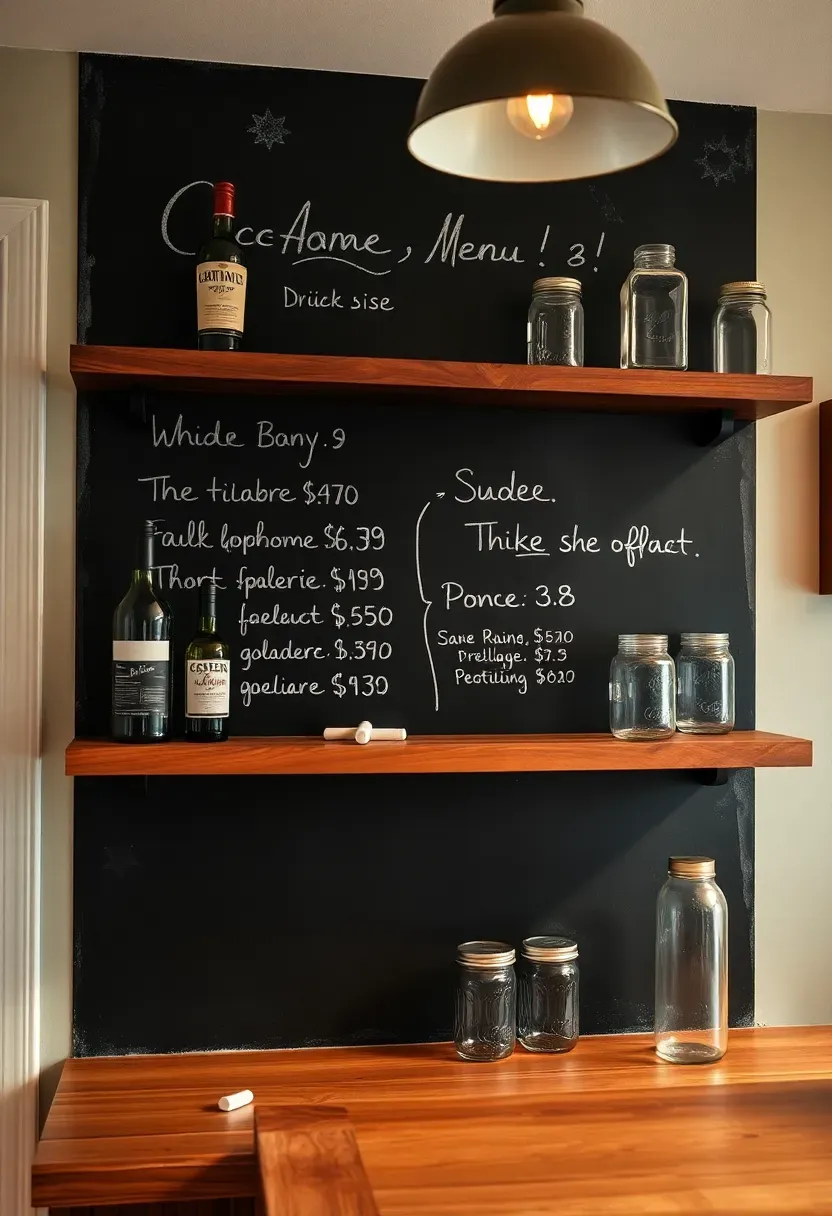 Menu! 3!
Drück sise
Whide Bany. 9
The tilabre $470
lophome $6.39
Thort fpalerie. $199
faeleuct $.550
goladerc. $.390
goeliare $930
Sudee.
Thike she offlact.
Ponce: 3.8
Sane Raino, $570
Prellloge. $7.3
Peotiliing $620